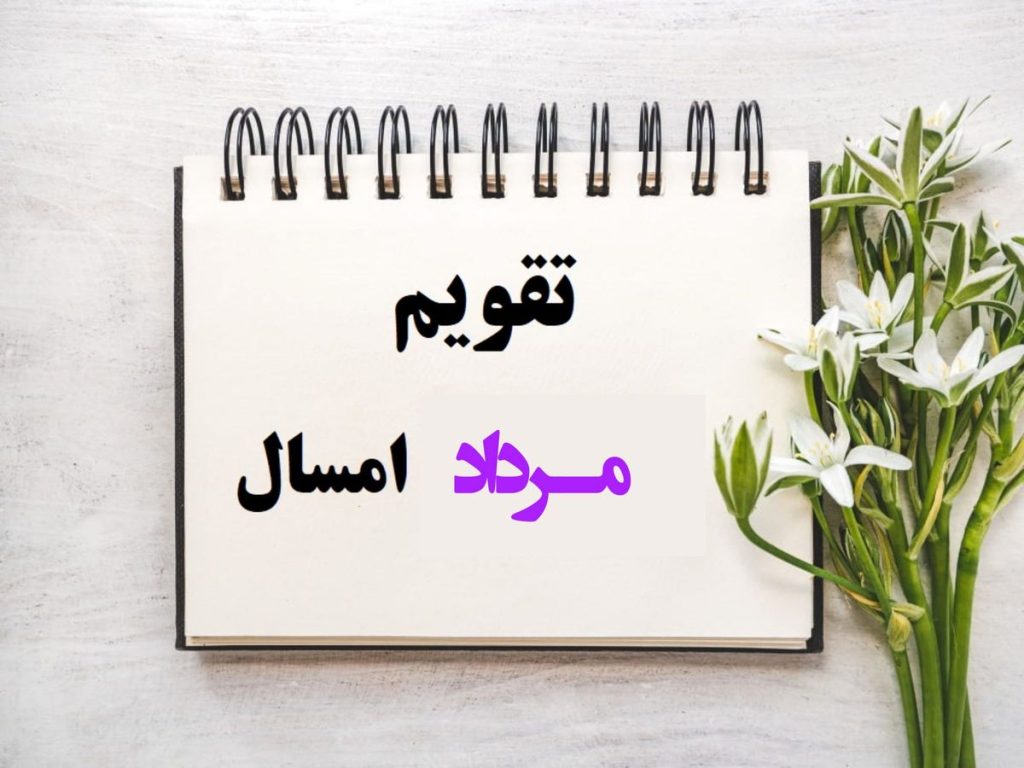 تقویم
مرداد امسال